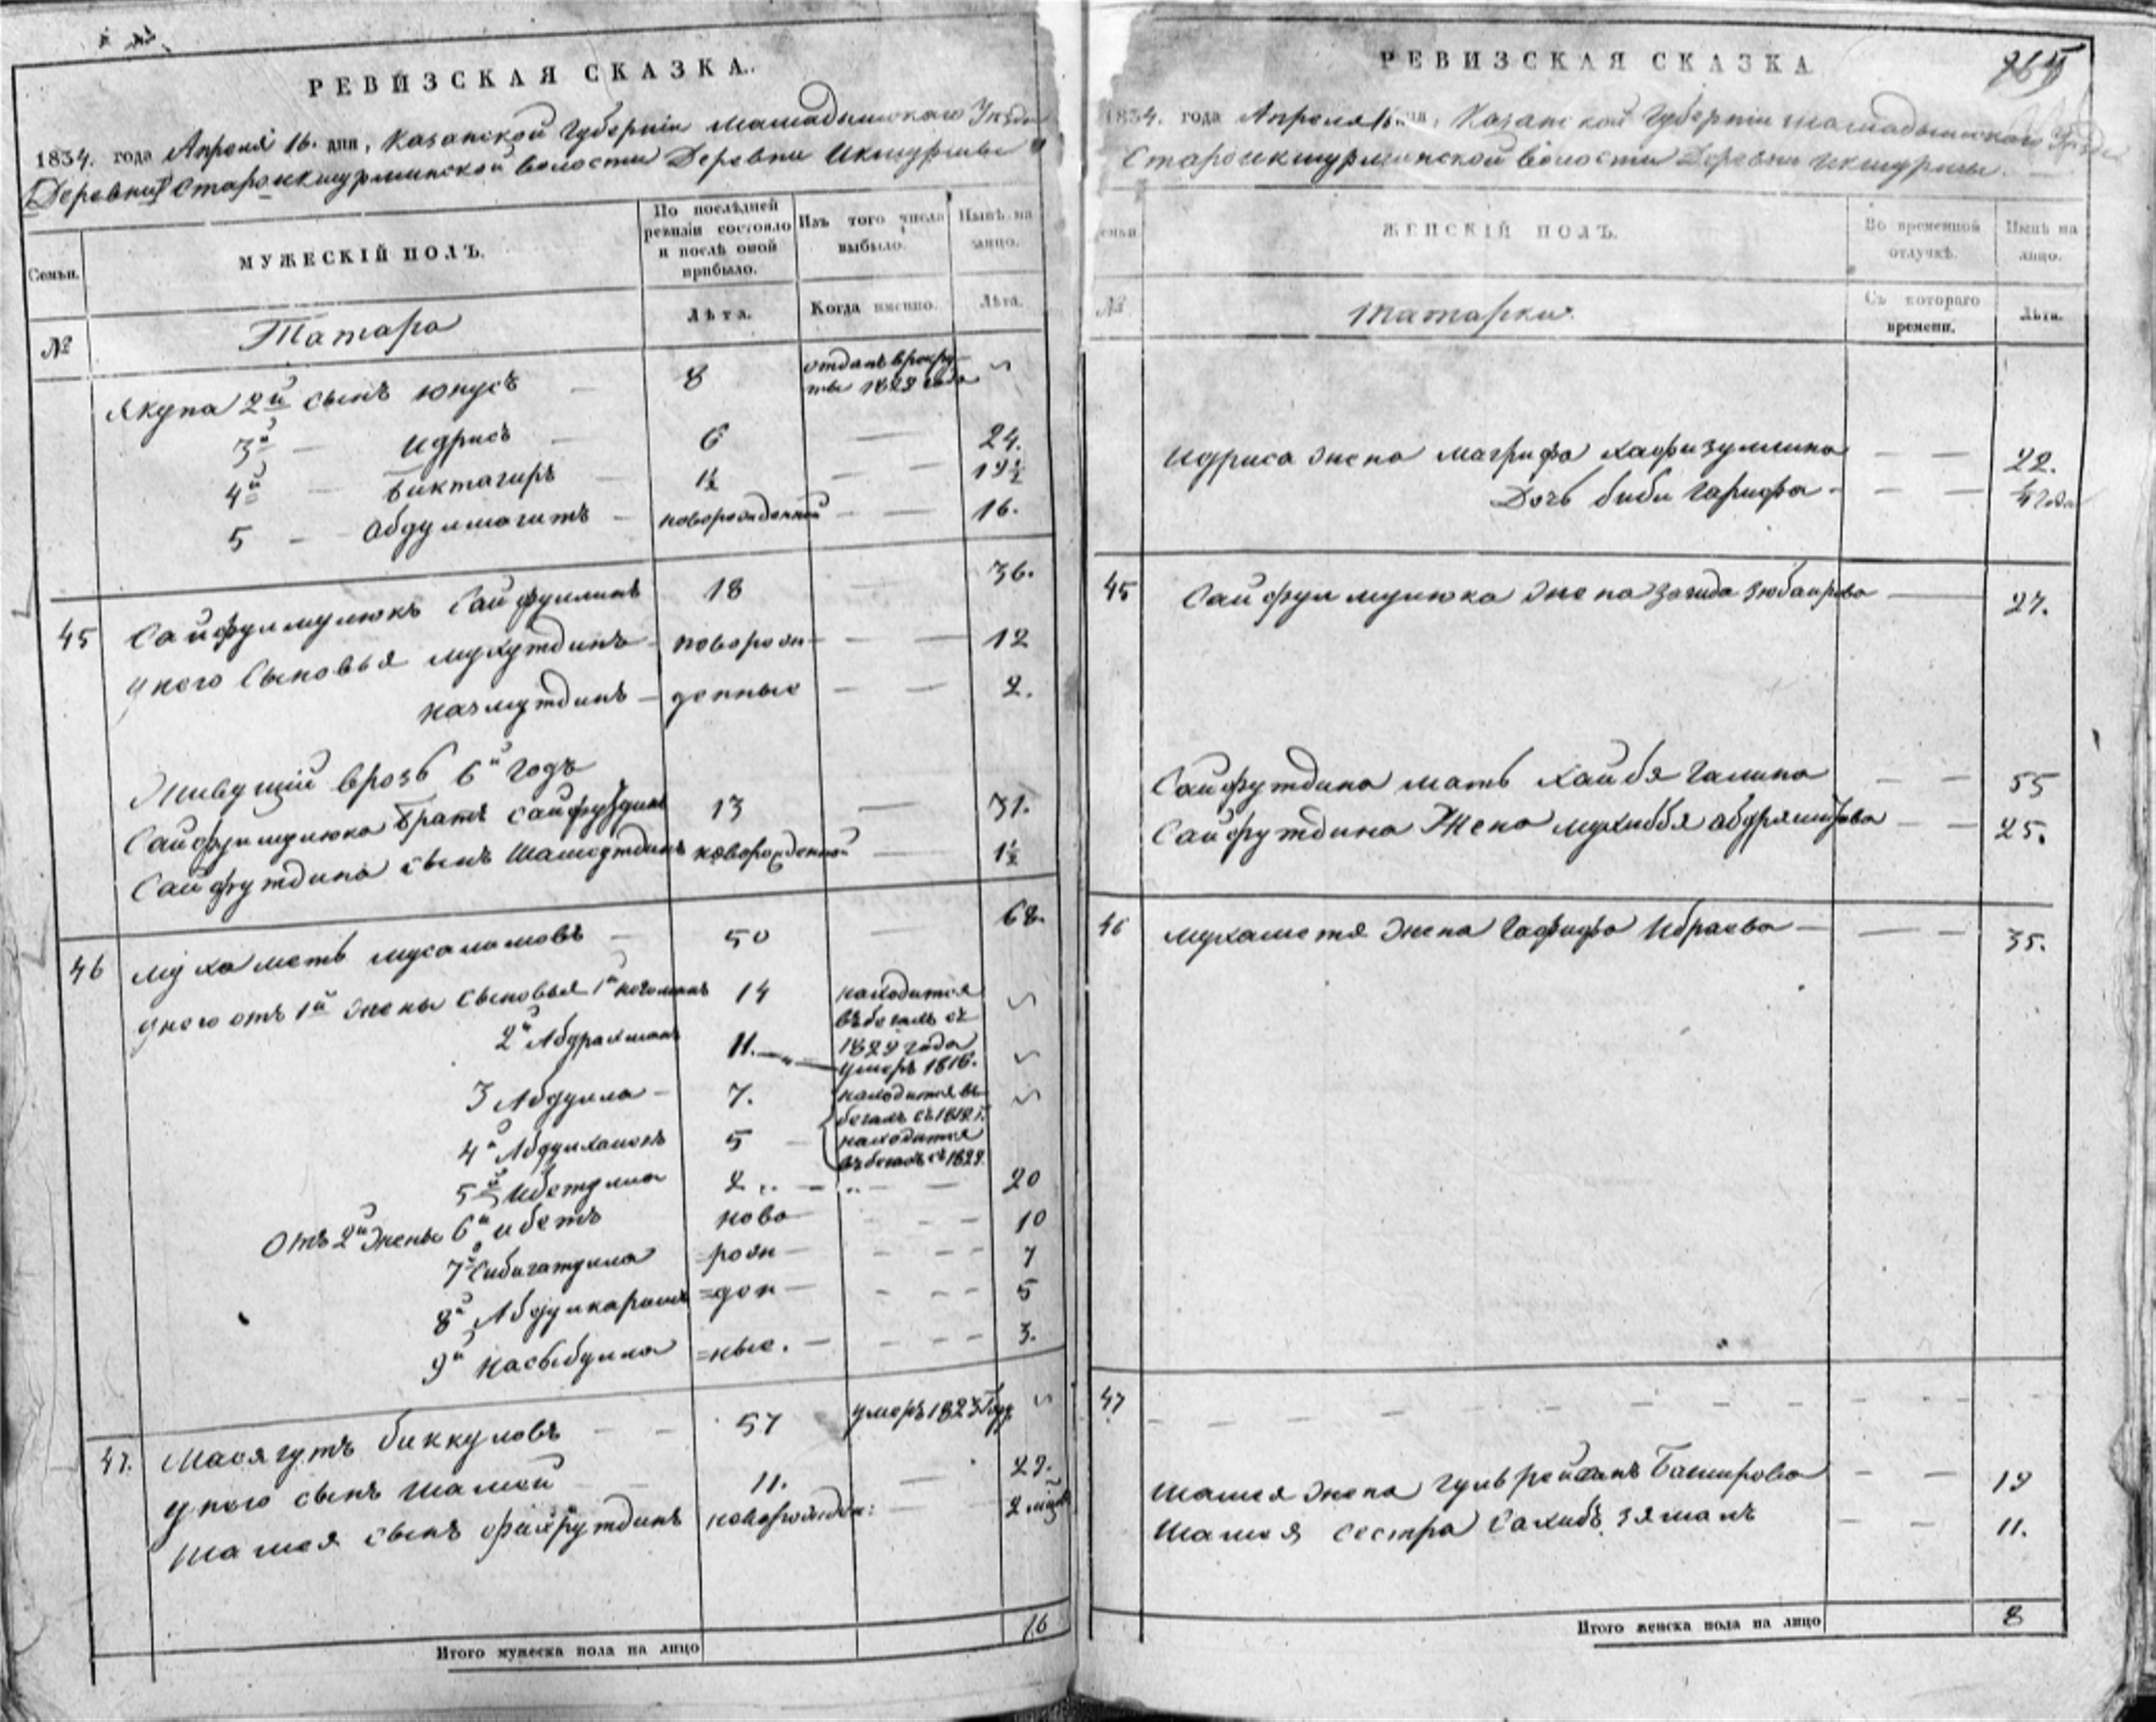 РЕВИЗСКАЯ СКАЗКА.
1834. года Апреля 16. дня, Казанской Губернии Мамадышскаго Уезда
Деревни Староикшурминской волости Деревни Икшурмы
Семьи.
МУЖЕСКІЙ ПОЛЪ.
По послѣдней ревизіи состояло и послѣ оной прибыло.
Изъ того числа выбыло.
Нынѣ на лицо.
№
Татара
Лѣта.
Когда именно.
Лѣта.
Якупа 2й сынъ Юнусъ — 8 отданъ врекру-
ты 1829 года
3й — Идрисъ — 6 — 24.
4й — Биктагиръ — 1½ — — 19½
5 — Абдулмагитъ — новорожденной — — 16.
45 Сайфулмулюкъ Сайфуллинъ 18 — 36.
у него Сыновья Мухутдинъ — новорож- — — 12
Назмутдинъ — денные — — 2.
Живущій врозь 6й годъ
Сайфулмулюка Братъ Сайфутдинъ 13 — 31.
Сайфутдина сынъ Шамсутдинъ новорожденной — 1½
46 Мухаметь Мусалямовъ — 50 — 68.
у него отъ 1й жены Сыновья 1й 14 находится
въ бегахъ съ
1829 года
2й Абдрахманъ 11. — умеръ 1816.
3 Абдулла — 7. находится въ
бегахъ съ 1812 г.
4й Абдулханнъ 5 — находится
въ бегахъ съ 1829.
5й Ибетулла 2 — — 20
Отъ 2й жены 6й Ибетъ ново- — — — 10
7й Сибигатулла рож- — — — 7
8й Абдулкаримъ =ден- — — — 5
9й Насыбулла =ные. — — — — 3.
47. Масягутъ Биккуловъ — — 57 умеръ 1823 Году
у него сынъ Шамей 11. — 29.
Шамея сынъ Фахрутдинъ новорожден: — 2 мѣся
Итого мужеска пола на лицо 16
РЕВИЗСКАЯ СКАЗКА
1834. года Апреля 16 дня, Казанской Губерніи Мамадышскаго Уезда
Староикшурминской волости Деревни Икшурмы.
семьи
ЖЕНСКІЙ ПОЛЪ.
Во временной отлучкѣ.
Нынѣ на лицо.
№
Татарки
Съ котораго времени.
Лѣта.
Идриса жена Магрифа Хафизуллина — — 22.
Дочь Биби Гарифа — — — ¼ года
45 Сайфулмулюка жена Загида Зюбаирова — 27.
Сайфутдина мать Хайбя Галина — — 55
Сайфутдина Жена Мухиббя Абдряшитова — — 25.
46 Мухаметя жена Гафифа Ибраева — — — 35.
47
Шамея жена Гульрейханъ Баширова — — 19
Шамея сестра Сахибъ Зямалъ — — 11.
Итого женска пола на лицо 8